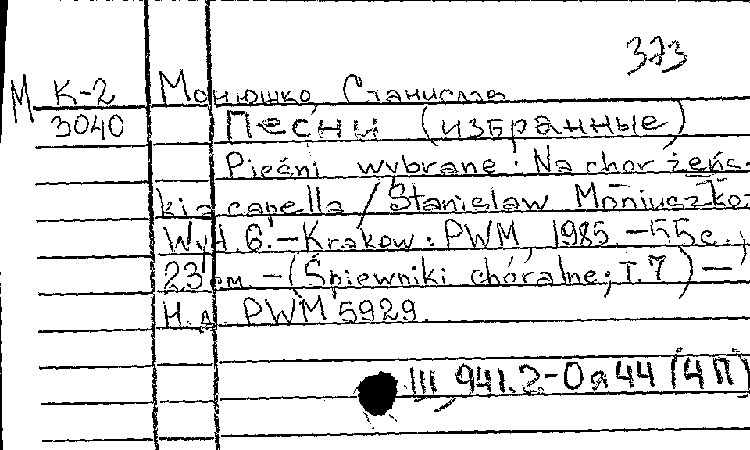 373
М К-2 Монюшко, Станислав
3040 Песни (избранные)
Pieśni wybrane: Na chór żeńs-
ki a capella / Stanislaw Moniuszko.
Wyd. 6. – Kraków: PWM, 1985. – 55 с.,
23 см. – (Śpiewniki chóralne; T. 7) –
Н.д. PWM 5929.
III 941.2-Оя44 (4П)